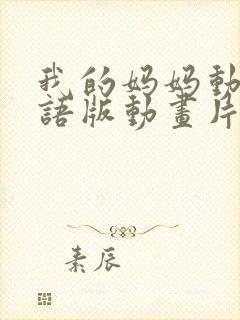 我的妈妈動
語版動畫片
素辰